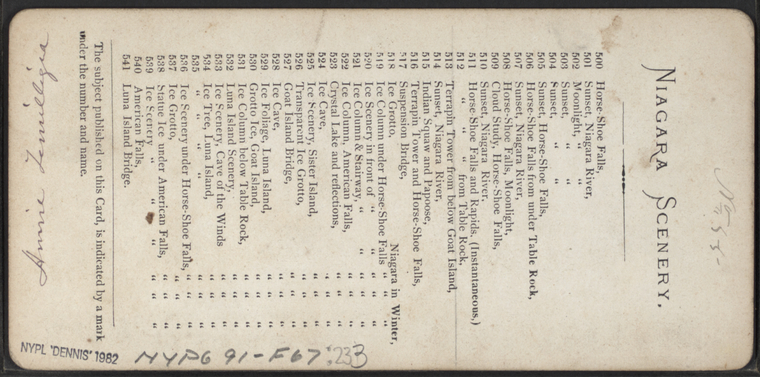 NIAGARA SCENERY.
500 Horse Shoe Falls,
501 Sunset, Niagara River,
502 Moonlight, " "
503 Sunset, " "
504 Sunset, " "
505 Sunset, Horse-Shoe Falls,
506 Horse-Shoe Falls from under Table Rock,
507 Sunset, Niagara River,
508 Horse-Shoe Falls, Moonlight,
509 Cloud Study, Horse-Shoe Falls,
510 Sunset, Niagara River,
511 Horse Shoe Falls and Rapids, (Instantaneous,)
512 " " " from Table Rock,
513 Terrapin Tower from below Goat Island,
514 Sunset, Niagara River,
515 Indian Squaw and Papoose,
516 Terrapin Tower and Horse-Shoe Falls,
517 Suspension Bridge,
518 Ice Grotto, Niagara in Winter,
519 Ice Column under Horse-Shoe Falls " "
520 Ice Scenery in front of " " " "
521 Ice Column & Stairway, " " "
522 Ice Column, American Falls, " "
523 Crystal Lake and reflections, " "
524 Ice Cave, " "
525 Ice Scenery, Sister Island, " "
526 Transparent Ice Grotto, " "
527 Goat Island Bridge, " "
528 Ice Cave, " "
529 Ice Foliage, Luna Island, " "
530 Grotto Ice, Goat Island, " "
531 Ice Column below Table Rock, " "
532 Luna Island Scenery, " "
533 Ice Scenery, Cave of the Winds " "
534 Ice Tree, Luna Island, " "
535 " " " " " "
536 Ice Scenery under Horse-Shoe Falls, " "
537 Ice Grotto, " "
538 Statue Ice under American Falls, " "
539 Ice Scenery " " " " "
540 American Falls, " "
541 Luna Island Bridge. " "
The subject published on this Card, is indicated by a mark
under the number and name.
NYPL 'DENNIS' 1982
NYPG 91-F67:233